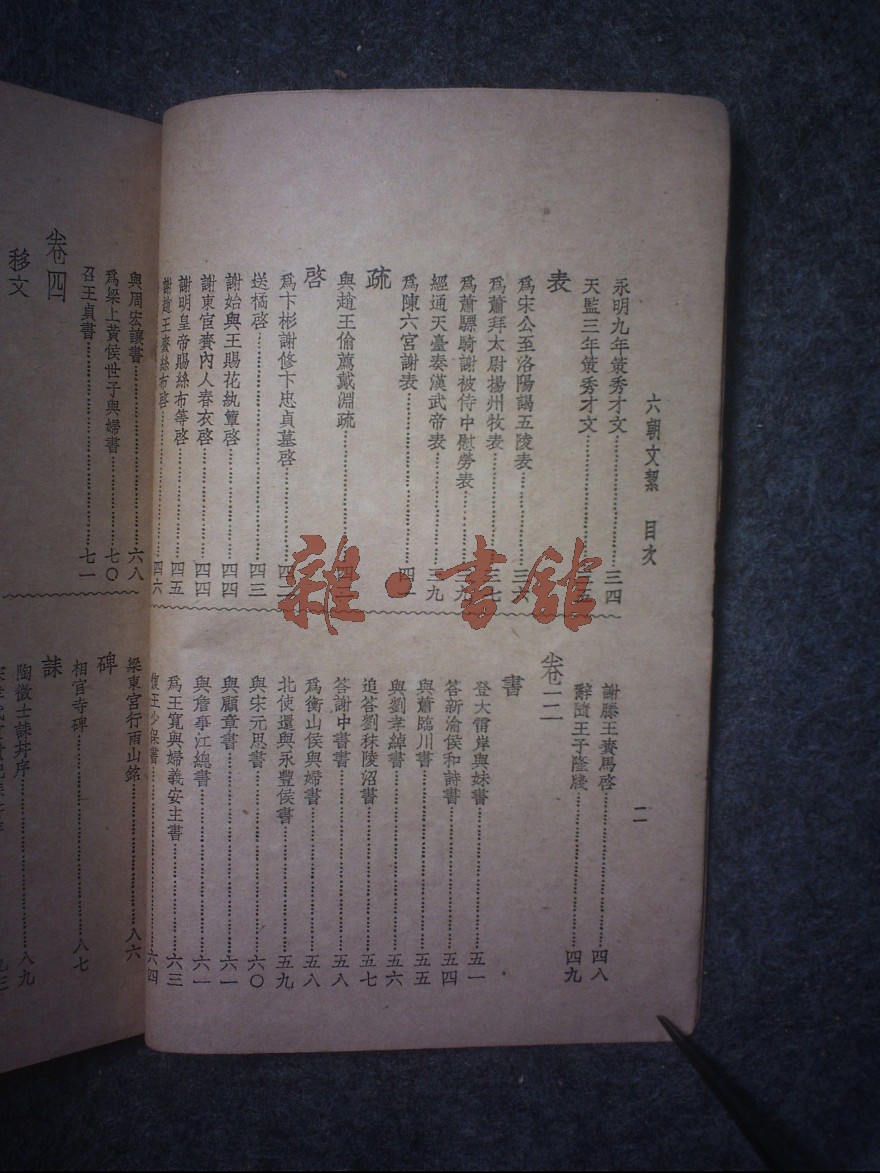 六朝文絜　目次
二
永明九年策秀才文 三四
天監三年策秀才文 三五
表
爲宋公至洛陽謁五陵表 三六
爲蕭拜太尉揚州牧表 三七
爲蕭驃騎謝被侍中慰勞表
經通天臺奏漢武帝表 三九
爲陳六宮謝表 四一
疏
與趙王倫薦戴淵疏
啓
爲卞彬謝修卞忠貞墓啓 四二
送橘啓 四三
謝始興王賜花紈簟啓 四四
謝東宮賚內人春衣啓 四四
謝明皇帝賜絲布等啓 四五
謝趙王賚絲布啓 四六
謝滕王賚馬啓 四八
辭隨王子隆牋 四九
卷三
書
登大雷岸與妹書 五一
答新渝侯和詩書 五四
與蕭臨川書 五五
與劉孝綽書 五六
追答劉秣陵沼書 五七
答謝中書書 五八
爲衡山侯與婦書 五八
北使還與永豐侯書 五九
與宋元思書 六〇
與顧章書 六一
與詹事江總書 六一
爲王寬與婦義安主書 六三
復王少保書 六四
與周宏讓書 六八
爲梁上黃侯世子與婦書 七〇
召王貞書 七一
卷四
移文
梁東宮行雨山銘 八六
碑
相官寺碑 八七
誄
陶徵士誄并序 八九
雜·書館